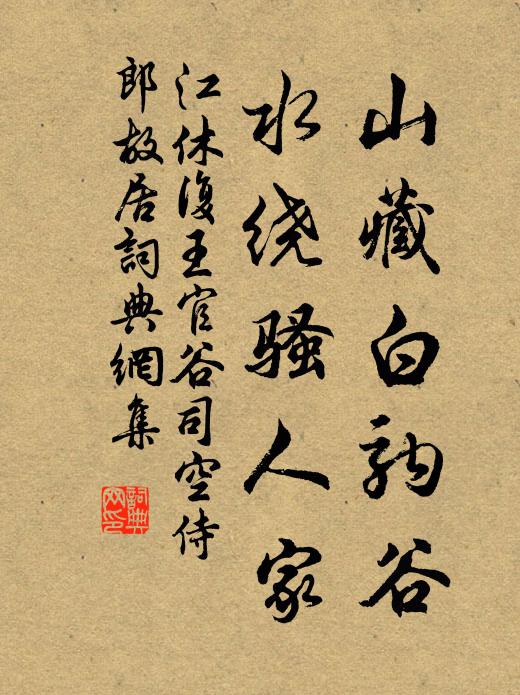 山藏白谷
水绕骚人家
江休復王官谷司空侍
郎故居詞典網集
詞典
网印